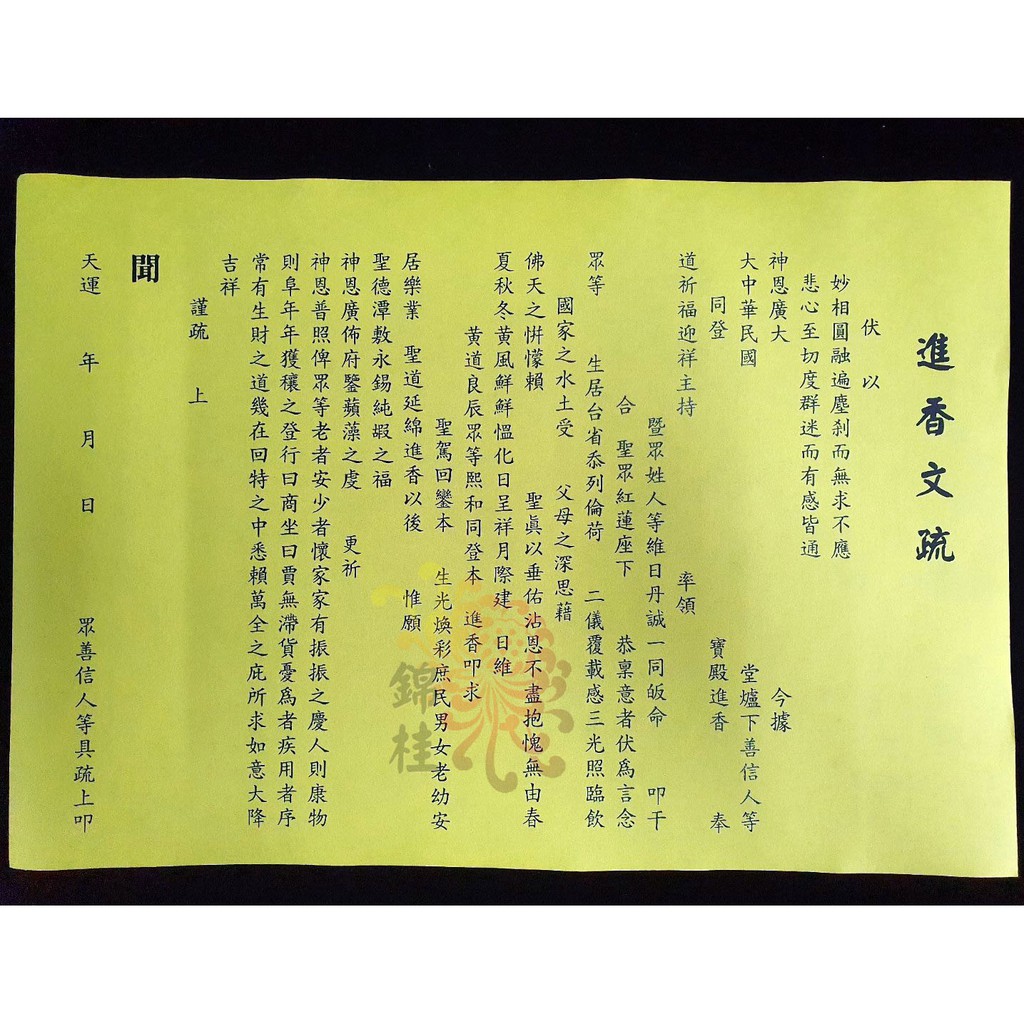 進香文疏
伏以
妙相圓融遍塵刹而無求不應
悲心至切度群迷而有感皆通
神恩廣大 今據
大中華民國 堂爐下善信人等
同登 寶殿進香 奉
道祈福迎祥主持 率領
暨眾姓人等維日丹誠一同皈命 叩干
合 聖眾紅蓮座下 恭稟意者伏爲言念
眾等 生居台省忝列倫荷 二儀覆載感三光照臨飲
國家之水土受 父母之深思藉
佛天之帡懞賴 聖眞以垂佑沾恩不盡抱愧無由春
夏秋冬黄風鮮鮮慍化日呈祥月際建 日維
黄道良辰眾等熙和同登本 進香叩求
聖駕回鑾本 生光煥彩庶民男女老幼安
居樂業 聖道延綿進香以後 惟願
聖德潭敷永錫純嘏之福
神恩廣佈府鑒蘋藻之虔 更祈
神恩普照俾眾等老者安少者懷家家有振振之慶人則康物
則阜年年獲穰之登行曰商坐曰賈無滯貨憂爲者疾用者序
常有生財之道幾在回特之中悉賴萬全之庇所求如意大降
吉祥
謹疏 上
聞
天運 年 月 日 眾善信人等具疏上叩
錦桂